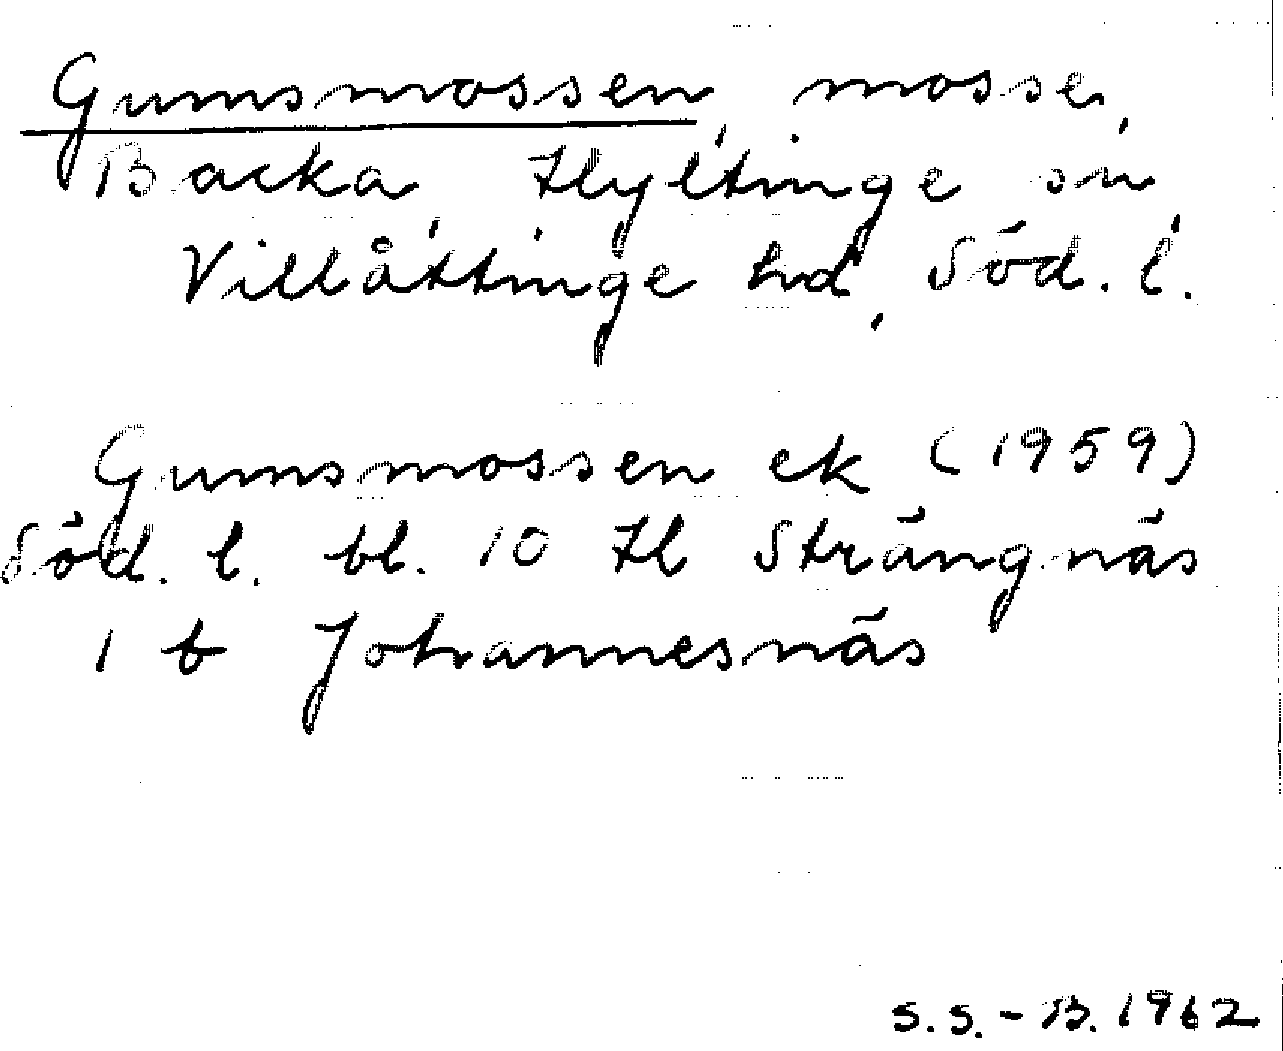 Gumsmossen, mosse,
Backa, Hyltinge sn,
Villåttinge hd, Söd. l.
Gumsmossen ek (1959)
Söd. l. bl. 10 H Strängnäs
1 b Johannesnäs
S.S.-B. 1962